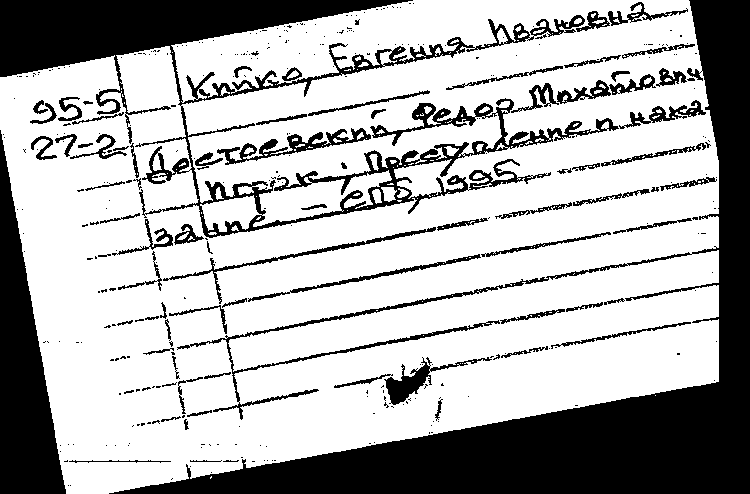 95-5 Кийко, Евгения Ивановна
27-2
Достоевский, Федор Михайлович
Игрок; Преступление и нака-
зание – СПб, 1995